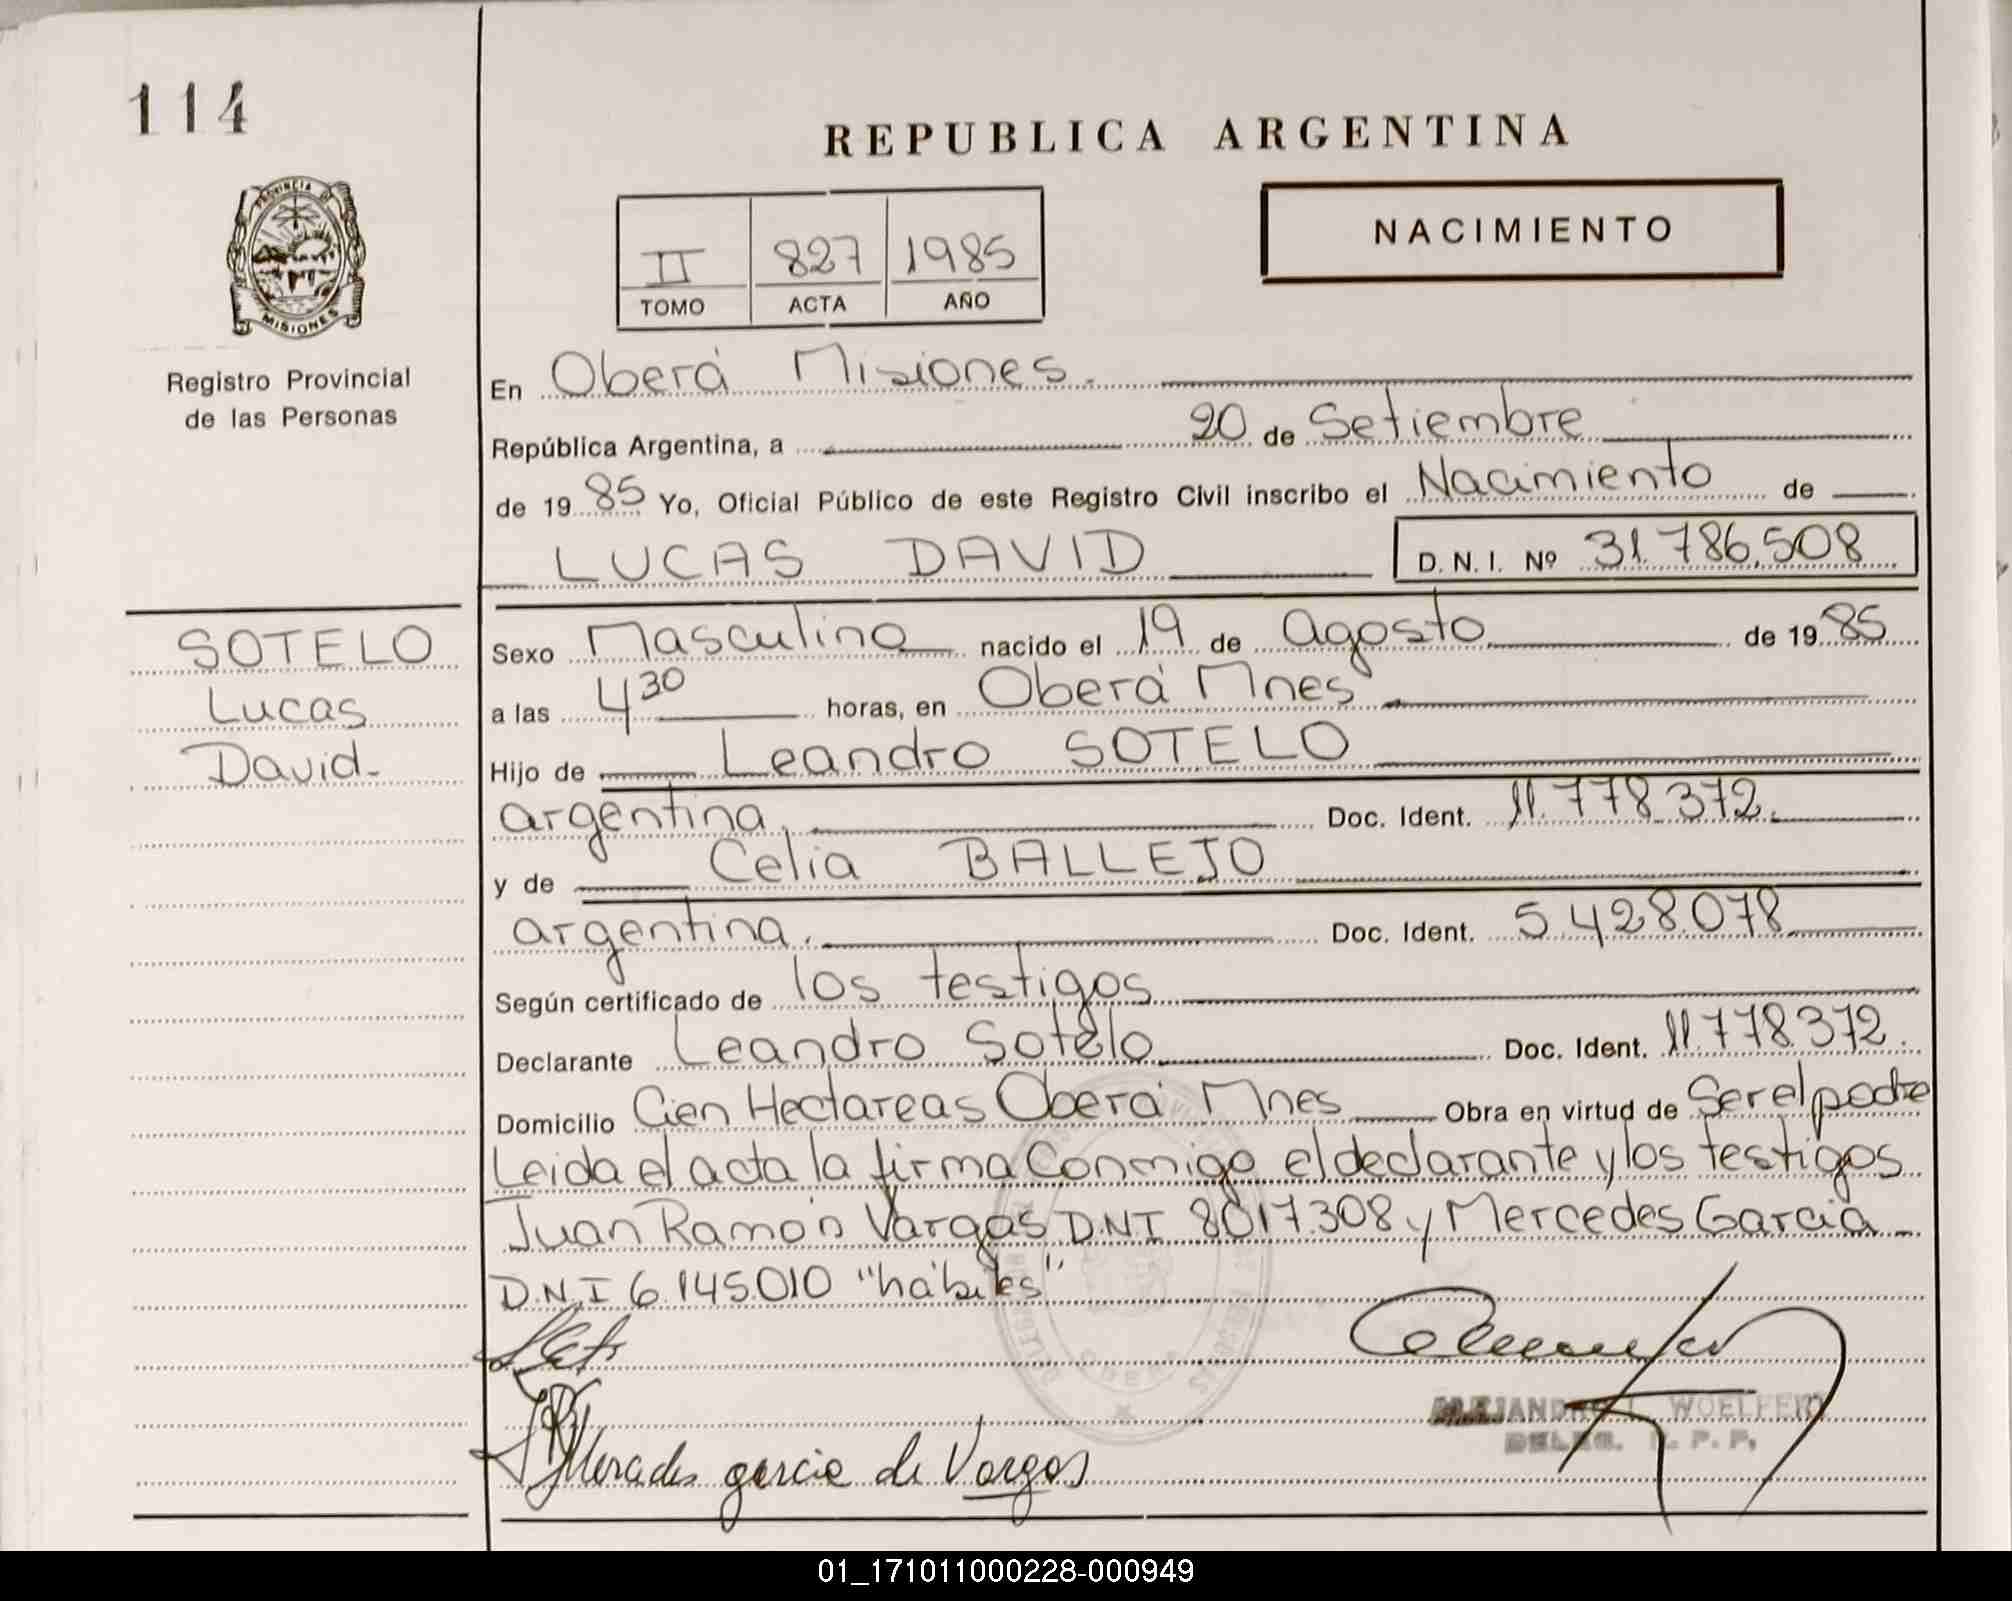 114
REPUBLICA ARGENTINA
NACIMIENTO
II 827 1985
TOMO ACTA AÑO
PROVINCIA DE
MISIONES
Registro Provincial
de las Personas
En Oberá Misiones.
República Argentina, a 20 de Setiembre
de 19 85 Yo, Oficial Público de este Registro Civil inscribo el Nacimiento de
LUCAS DAVID D. N. I. Nº 31.786.508
SOTELO
Lucas
David-
Sexo Masculino nacido el 19 de agosto de 19 85
a las 4 30 horas, en Oberá Mnes
Hijo de Leandro SOTELO
argentina. Doc. Ident. 11.778.372.
y de Celia BALLEJO
argentina. Doc. Ident. 5.428.078
Según certificado de los testigos
Declarante Leandro Sotelo Doc. Ident. 11.778.372.
Domicilio Cien Hectareas Oberá Mnes Obra en virtud de Ser el padre
Leida el acta la firma Conmigo el declarante y los testigos
Juan Ramón Vargas D.N.I 8.017.308 y Mercedes Garcia
D.N.I 6.145.010 "hábiles"
Mercedes garcia de Vargas
WOELFERT
R. P. P.
01_171011000228-000949